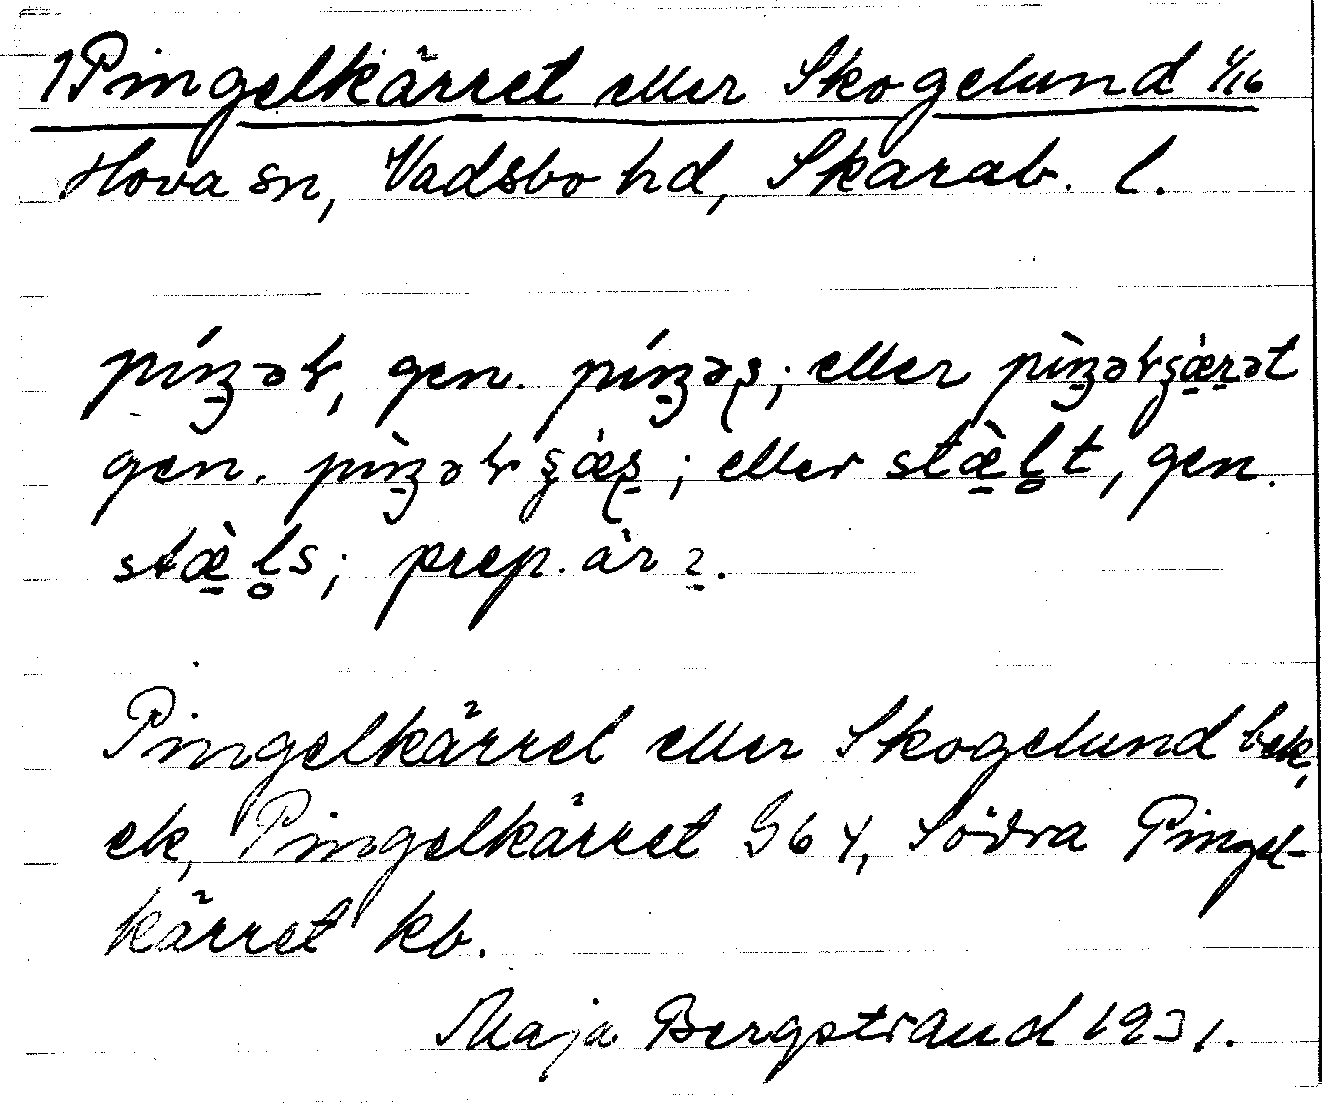 1 Pingelkärret eller Skogelund 1/16
Hova sn, Vadsbo hd, Skarab. l.
píŋəɫ, gen. píŋəʂ; eller pìŋəɫʂæ̀rət
gen. pìŋəɫʂæ̀ʂ; eller stæ̀l̥t, gen.
stæ̀l̥s; prep. àr 2.
Pingelkärret eller Skogelund bek,
ek, Pingelkärret G 64, Södra Pingel-
kärret kb.
Maja Bergstrand 1931.